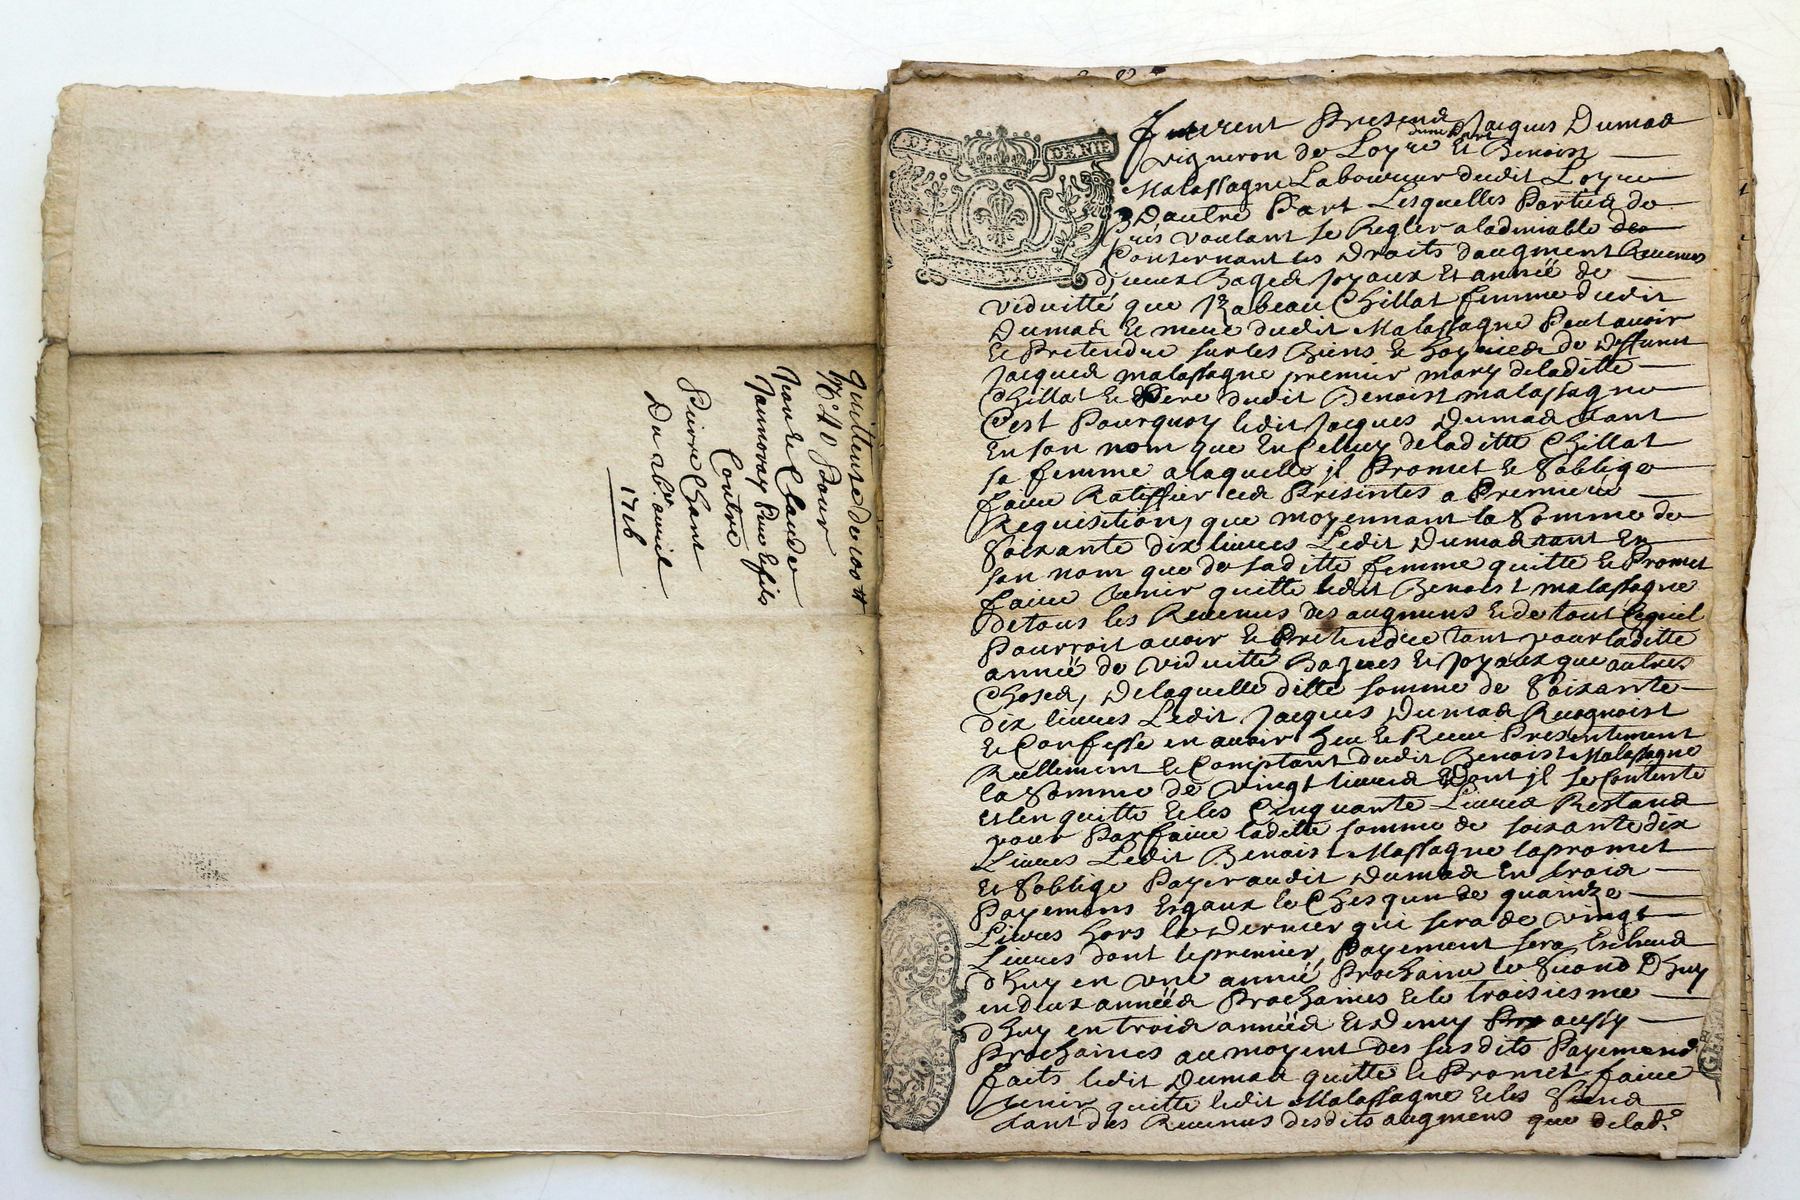 quittense de 100 tt
pour
Claude
Journovay Pere et fils
Contre
Pierre Chant
Du avril
1716
DIX DENIE
G. DE LYON
Furent Presend Jacques Dumas
dune part
vigneron de Loyre Et Benoist
Malassagne Laboureur dudit Loyre
Dautre Part Lesquelles Parties de
Gréé voulant se Regler a ladmiable
Consernant les Droits daugment Revenus
diceux Bagues Joyaux Et année de
viduitté que Izabeau Chillat femme dudit
Dumas Et mere dudit Malassagne Peut avoir
Et Pretendre sur les Biens Et hoyries de deffunt
Jacques malassagne premier mary deladitte
Chillat Et Pere dudit Benoist malassagne
Cest Pourquoy ledit Jacques Dumas tant
En son nom que En Celluy deladitte Chillat
sa femme alaquelle jl Promet Et Soblige
faire Ratiffier ces Presintes a Premiere
Requisition, que moyennant la Somme de
Soixante dix livres Ledit Dumas tant En
son nom que de saditte femme quitte Et Promet
faire tenir quitte ledit Benoist malassagne
detous les Revenus des augmens Et de tout Cequil
Pourroit avoir Et Pretendre tant pour laditte
année de viduitté Bagues Et joyaux que autres
Choses, Delaquelle ditte somme de Soixante
dix livres Ledit Jacques Dumas Recognoist
Et Confesse en avoir heu Et Receu Presentement
Reellement Et Comptant dudit Benoist Malassagne
la Somme de vingt livres Dont jl se Contente
Et len quitte Et les Cinquante Livres Restand
pour Parfaire laditte somme de soixante dix
Livres Ledit Benoist Massagne lapromet
Et Soblige Payer audit Dumas En trois
Payemens Esgaux le Chesqun de quainze
Livres hors le Dernier qui sera de vingt
Livres dont le premier Payement sera Escheud
dhuy en une année Prochaine le Second Dhuy
en deux années Prochaines Et le troisiesme
dhuy en trois années Et Demy aussy
Prochaines au moyent des susdits Payemend
faits ledit Dumas quitte Et Promet faire
tenir quitte ledit Malassagne Et les Siens
tant des Revenus desdits augmens que delad.e